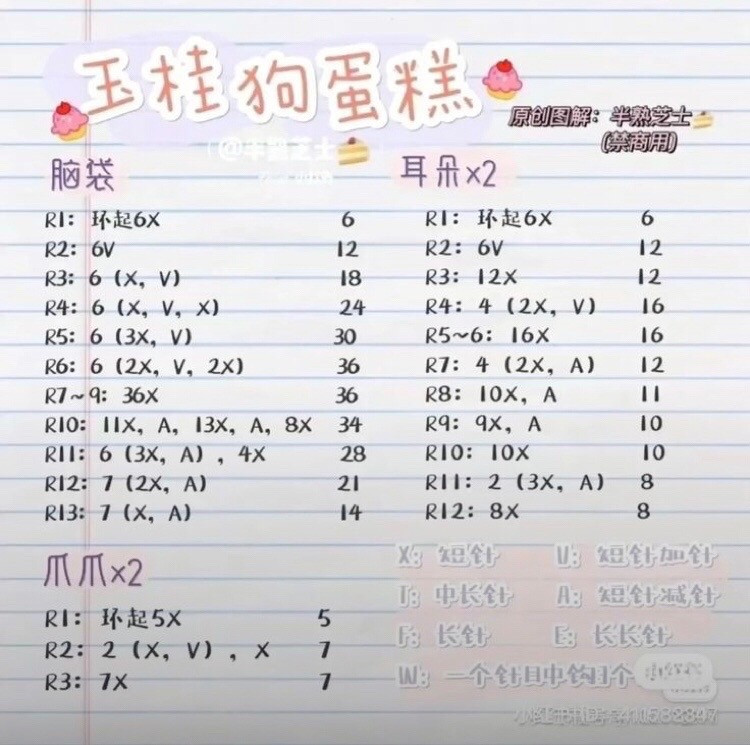 玉桂狗蛋糕
原创图解：半熟芝士
(禁商用)
@半熟芝士
脑袋
R1：环起6X 6
R2：6V 12
R3：6 (X, V) 18
R4：6 (X, V, X) 24
R5：6 (3X, V) 30
R6：6 (2X, V, 2X) 36
R7~9：36X 36
R10：11X, A, 13X, A, 8X 34
R11：6 (3X, A) , 4X 28
R12：7 (2X, A) 21
R13：7 (X, A) 14
耳朵x2
R1：环起6X 6
R2：6V 12
R3：12X 12
R4：4 (2X, V) 16
R5~6：16X 16
R7：4 (2X, A) 12
R8：10X, A 11
R9：9X, A 10
R10：10X 10
R11：2 (3X, A) 8
R12：8X 8
爪爪x2
R1：环起5X 5
R2：2 (X, V) , X 7
R3：7X 7
X：短针 V：短针加针
T：中长针 A：短针减针
F：长针 E：长长针
W：一个针目中钩3个